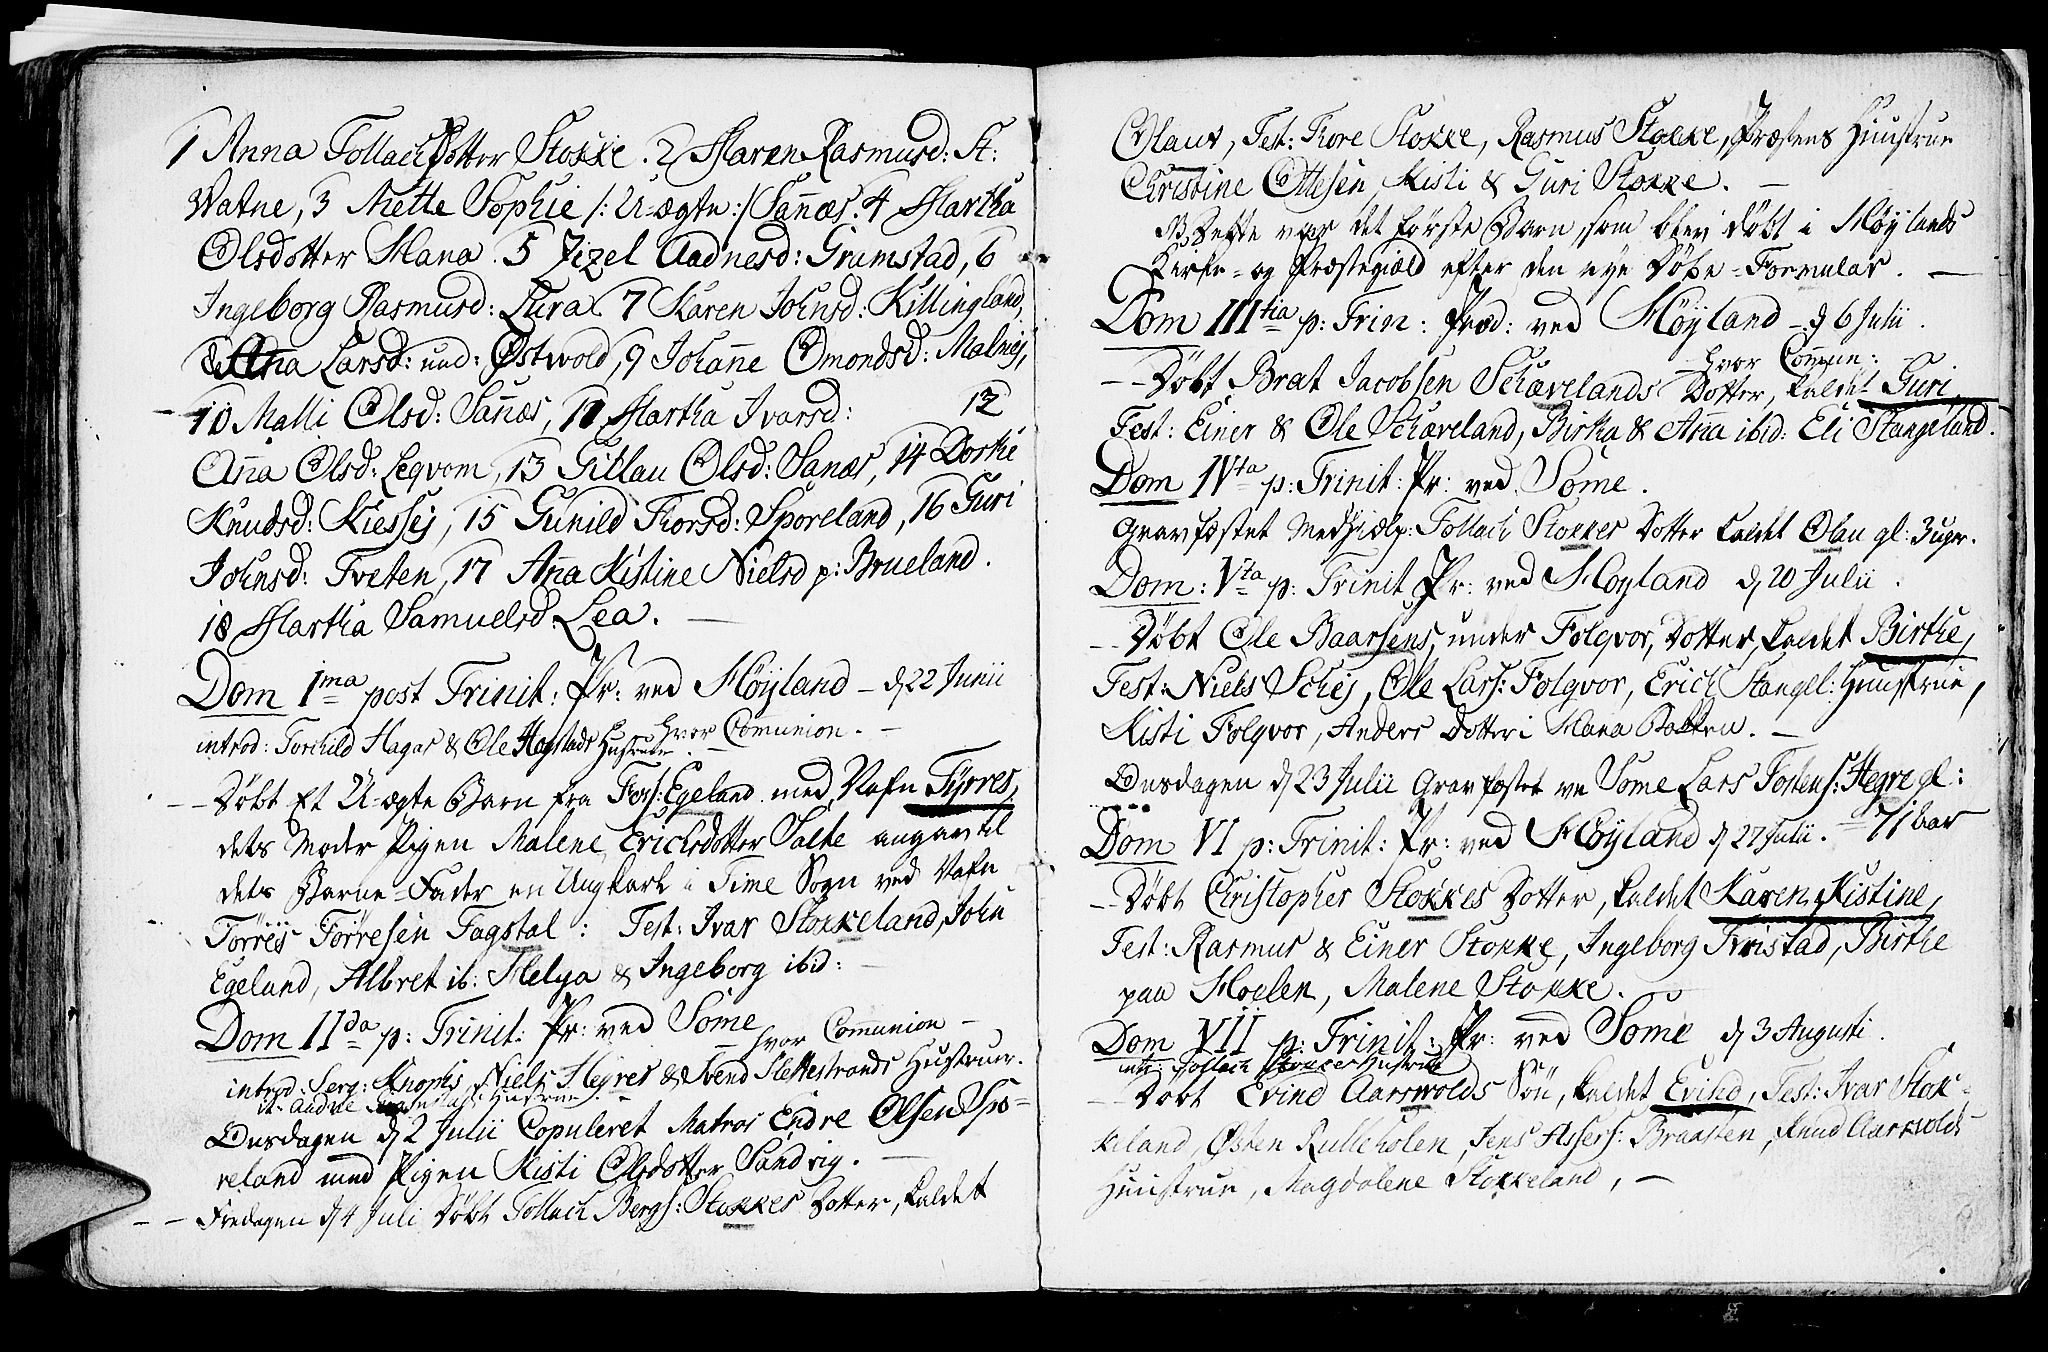 1 Anna Tollachdotter Stokke. 2 Maren Rasmusd: St:
Watne, 3 Mette Sophie /: U-ægte :/ Sañæs. 4 Martha
Olsdotter Hana. 5 Zizel Aadnesd: Gramstad, 6
Ingeborg Rasmusd: Lura. 7 Karen Johnsd: Killingland,
8 Ana Larsd: und: Østwold, 9 Johañe Omondsd: Malmej,
10 Malli Olsd: Sañæs, 11 Martha Ivarsd: 12
Aña Olsd: Leqvom, 13 Olsd: Sanæs, 14 Dorthe
Knudsd: Kiessej, 15 Gunild Thorsd: Sporeland, 16 Guri
Johnsd: Tveten, 17 Aña Kistine Nielsd p: Brueland.
18 Martha Samuelsd: Lea. —
Dom 1ma post Trinit: Pr: ved Höyland – d 22 Junii
hvor Communion. —
introd: Torchild Hagas & Ole Hogstads Hustruer
– – Döbt Et U-ægte Barn fra Fors: Egeland med Nafn Tyrres,
dets Moder Pigen Malene Erichsdotter Salte angav til
dets Barne-Fader en Ungkarl i Time Sogn ved Nafn
Törres Törresen Fagstal: Test: Ivar Stokkeland, John
Egeland, Albret ib: Helga & Ingeborg ibid: —
Dom IIda p: Trinit: Pr: ved Some
hvor Communion –
introd: Serg: Knophs, Niels Heyres & Svend Slettestrands Hustruer.
it: Aadne Hustrue.
Onsdagen d 2 Julii Copuleret Matros Endre Olsen Spo=
reland med Pigen Kisti Olsdotter Sandvig. —
– – Fredagen d 4 Juli Döbt Tollach Bergs: Stokkes Dotter, kaldet
Olau, Test: Thore Stokke, Rasmus Stokke, Præstens Huustrue
Christine Ottesen, Kisti & Guri Stokke. —
NB dette var det förste Barn, som blev döbt i Høylands
Kirke- og Præstegield efter den nye Döbe-Formular. —
Dom IIItia p: Trin: Præd: ved Höyland – d 6 Julii.
– hvor Comun: –
– – Döbt Brat Jacobsen Schævelands Dotter, kaldet Guri,
Test: Einer & Ole Schæveland, Birtha & Aña ibid: Eli Stangeland.
Dom IVta p: Trinit: Pr: ved Some.
Gravfæstet Medhielp: Tollach Stokkes Dotter kaldet Olau gl: 3 uger.
Dom: Vta p: Trinit Pr: ved Höyland d 20 Julii.
– – Döbt Ole Baarsens, under Folqvor, Dotter, kaldet Birthe,
Test: Niels Schej, Ole Lars: Folqvor, Erich Stangel: Huustrue,
Kisti Folqvor, Anders Dotter i Hana Bakken. —
Onsdagen d 23 Julii Gravfæstet ve Some Lars Tostens: Hegre gl:
71 aar
Dom VI p: Trinit: Pr: ved Höyland d 27 Julii.
– – Döbt Christopher Stokkes Dotter, kaldet Karen Kistine,
Test: Rasmus & Einer Stokke, Ingeborg Tvistad, Birthe
paa Moelen, Malene Stokke.
Dom VII p: Trinit: Pr: ved Some d 3 Augusti.
intr: Tollach Stokkes Hustrue
– – Döbt Evind Aarswolds Sön, kaldet Evind, Test: Ivar Stok=
keland, Østen Rulleholen, Jens Assers: Braasten, Knud Aarswolds
Huustrue, Magdalene Stokkeland, —